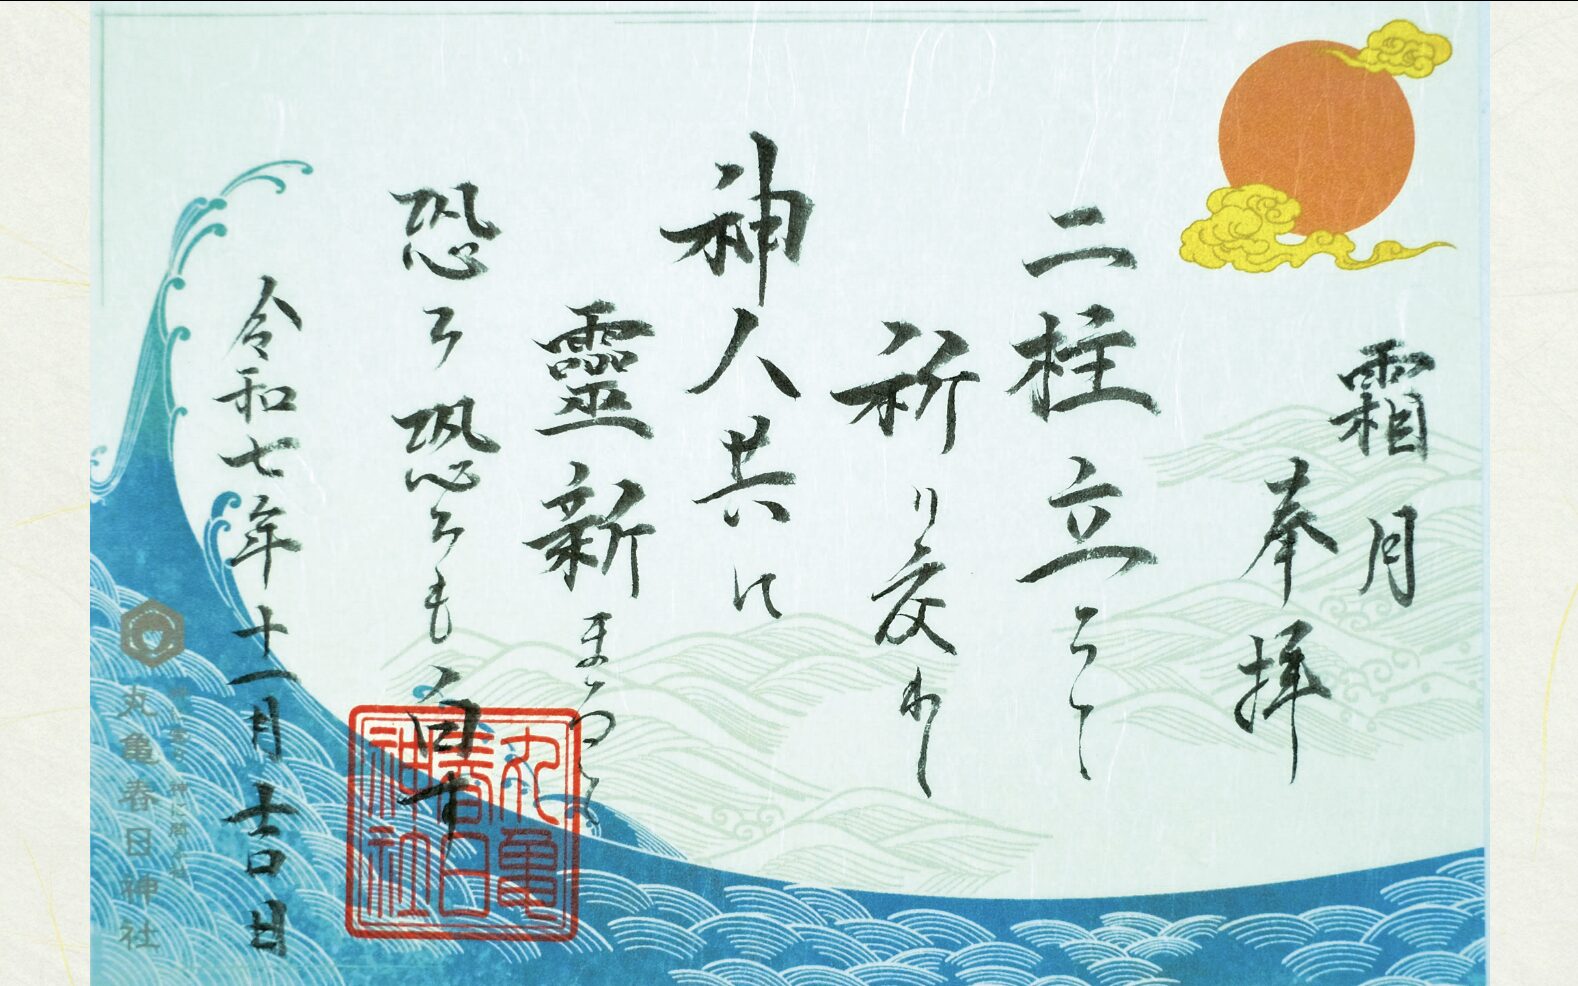 霜月
奉拝
二柱立
祈り交わし
神人共に
靈新まつ
恐み恐みも白す
令和七年十一月吉日
丸亀
春日
神社
丸亀春日神社